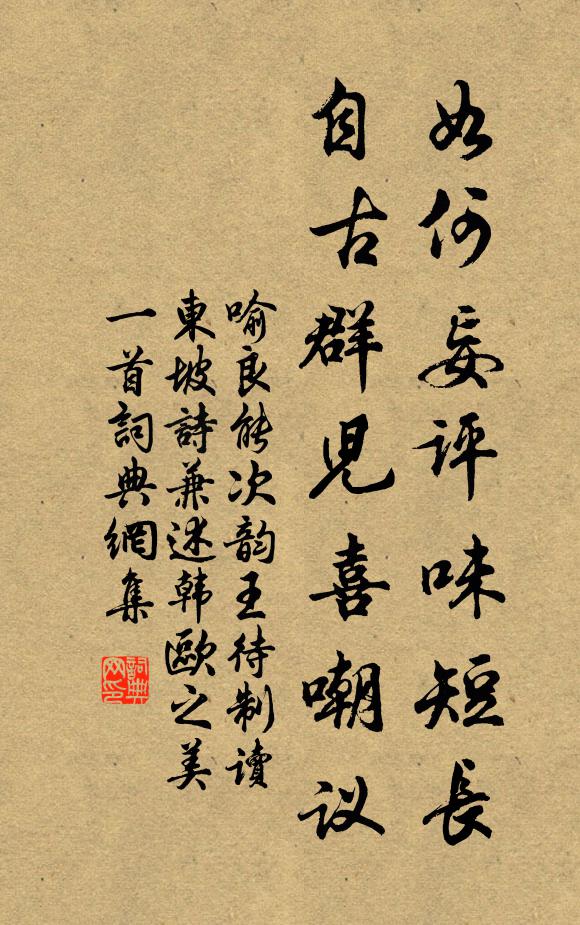 如何妄评味短長
自古群児喜嘲议
喻良能次韵王待制讀
東坡詩兼述韩歐之美
一首詞典網集
詞典
网印